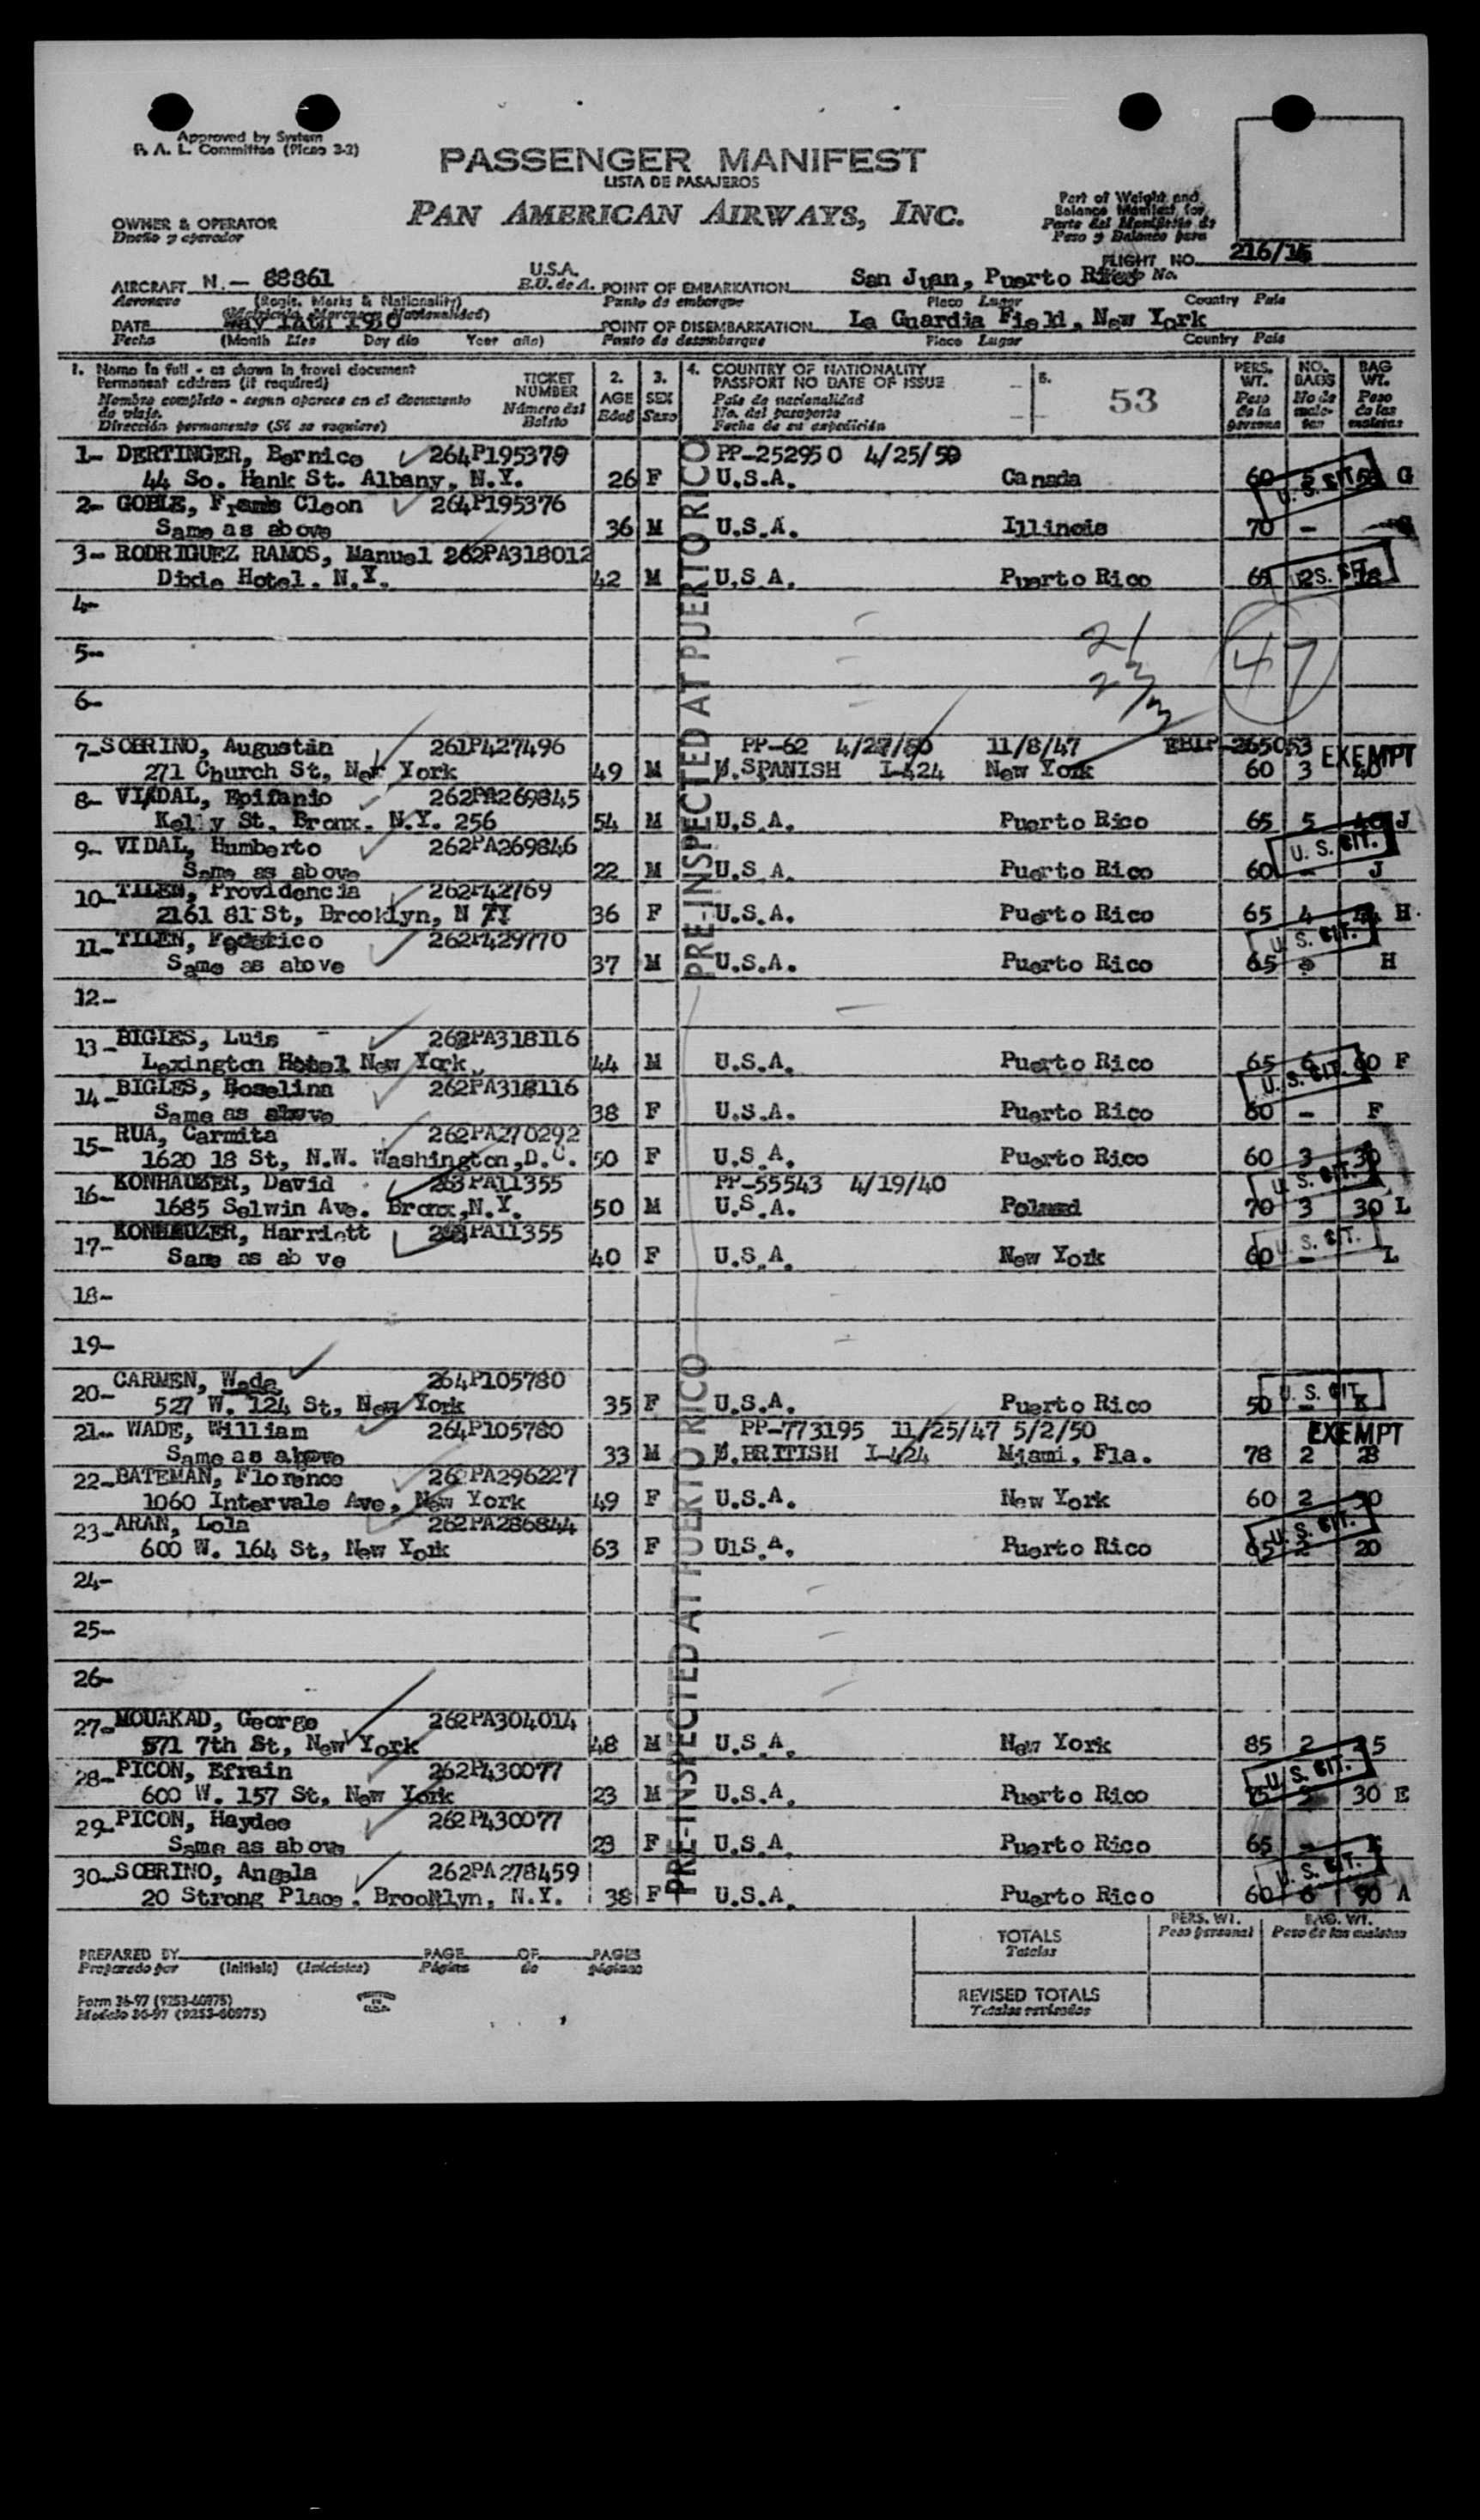 Approved by System
P. A. L. Committee (Picao 3-2)
PASSENGER MANIFEST
LISTA DE PASAJEROS
PAN AMERICAN AIRWAYS, INC.
Part of Weight and
Balance Manifest for
Parte del Manifiesto de
Peso y Balance para
OWNER & OPERATOR
Dueño y operador
FLIGHT NO. 216/
AIRCRAFT N.- 88861
Aeronave
(Regis. Marks & Nationality)
U.S.A.
E.U. de A.
POINT OF EMBARKATION San Juan, Puerto Rico
Punto de embarque
Place Lugar
Country Pais
DATE May
Fecha
(Month Mes Day dia Year año)
POINT OF DISEMBARKATION La Guardia Field, New York
Punto de desembarque
Place Lugar
Country Pais
1. Name in full - as shown in travel document
Permanent address (if required)
Nombre completo - segun aparece en el documento
de viaje.
Dirección permanente (Si se requiere)
TICKET
NUMBER
Número del
Boleto
2.
AGE
Edad
3.
SEX
Sexo
4. COUNTRY OF NATIONALITY
PASSPORT NO DATE OF ISSUE
Pais de nacionalidad
No. del pasaporte
Fecha de su expedición
5.
53
PERS.
WT.
Peso
de la
persona
NO.
BAGS
No de
male-
tas
BAG
WT.
Peso
de las
maletas
1- DERTINGER, Bernice 264P195379 PP-252950 4/25/50
44 So. Hank St. Albany, N.Y. 26 F U.S.A. Canada 60 5 G
U. S. CIT.
2- GOBLE, Cleon 264P195376
Same as above 36 M U.S.A. Illinois 70 -
3- RODRIGUEZ RAMOS, Manuel 262PA318012
Dixie Hotel. N.Y. 42 M U.S.A. Puerto Rico 65 2 18
U. S. CIT.
4-
5- 21
23/3
47
6-
7- SOBRINO, Augustin 261P427496 PP-62 11/8/47 265053
271 Church St, New York 49 M SPANISH I-424 New York 60 3 40
EXEMPT
8- VIDAL, Epifanio 262PA269845
Kelly St, Bronx. N.Y. 256 54 M U.S.A. Puerto Rico 65 5 40 J
U. S. CIT.
9- VIDAL, Humberto 262PA269846
Same as above 22 M U.S.A. Puerto Rico 60 - J
10- TILEN, Providencia 262P42769
2161 81 St, Brooklyn, N Y 36 F U.S.A. Puerto Rico 65 4 H
U. S. CIT.
11- TILEN, Federico 262P429770
Same as above 37 M U.S.A. Puerto Rico 65 H
12-
13- BIGLES, Luis 262PA318116
Lexington Hotel New York, 44 M U.S.A. Puerto Rico 65 6 60 F
U. S. CIT.
14- BIGLES, Roselina 262PA318116
Same as above 38 F U.S.A. Puerto Rico 60 - F
15- RUA, Carmita 262PA270292
1620 18 St, N.W. Washington, D.C. 50 F U.S.A. Puerto Rico 60 3 30
U. S. CIT.
16- KONHAUZER, David 263PA11355 PP-55543 4/19/40
1685 Selwin Ave. Bronx, N.Y. 50 M U.S.A. Poland 70 3 30 L
U. S. CIT.
17- KONHAUZER, Harriett PA11355
Same as ab ve 40 F U.S.A. New York 60 - L
18-
19-
20- CARMEN, Wade 264P105780
527 W. 124 St, New York 35 F U.S.A. Puerto Rico 50 - K
U. S. CIT.
21- WADE, William 264P105780 PP-773195 11/25/47 5/2/50
Same as above 33 M BRITISH I-424 Miami, Fla. 78 2 28
EXEMPT
22- BATEMAN, Florence 262PA296227
1060 Intervale Ave, New York 49 F U.S.A. New York 60 2 30
U. S. CIT.
23- ARAN, Lola 262PA286844
600 W. 164 St, New York 63 F U1S.A. Puerto Rico 65 2 20
24-
25-
26-
27- MOUAKAD, George 262PA304014
571 7th St, New York 48 M U.S.A. New York 85 2 25
U. S. CIT.
28- PICON, Efrain 262P430077
600 W. 157 St, New York 23 M U.S.A. Puerto Rico 30 E
29- PICON, Haydee 262P430077
Same as above 23 F U.S.A. Puerto Rico 65 - E
U. S. CIT.
30- SOBRINO, Angela 262PA278459
20 Strong Place. Brooklyn, N.Y. 38 F U.S.A. Puerto Rico 60 6 90 A
PRE-INSPECTED AT PUERTO RICO
PRE-INSPECTED AT PUERTO RICO
TOTALS
Totales
PERS. WT.
Peso personal
BAG. WT.
Peso de las maletas
REVISED TOTALS
Totales revisados
PREPARED BY
Preparado por
(Initials) (Iniciales)
PAGE OF PAGES
Página de páginas
Form 36-97 (9253-60975)
Modelo 36-97 (9253-60975)
PRINTED
IN
U.S.A.